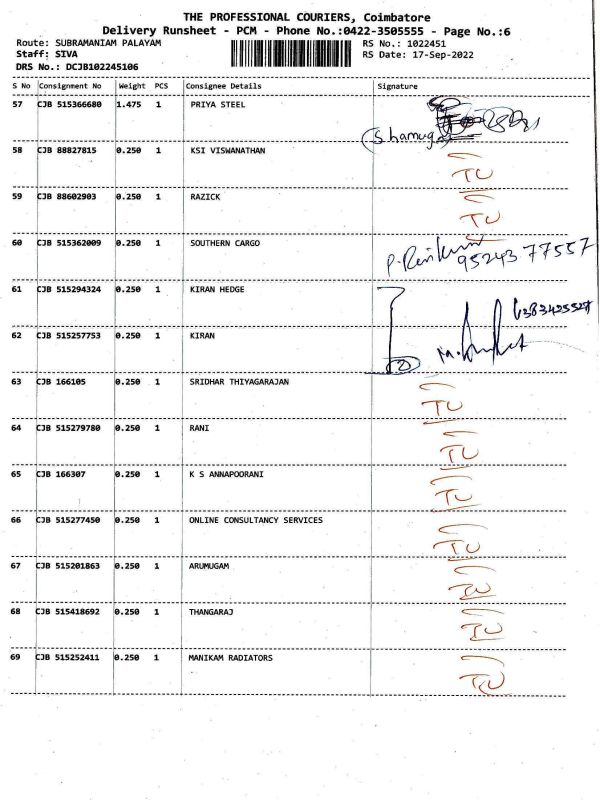 THE PROFESSIONAL COURIERS, Coimbatore
Delivery Runsheet - PCM - Phone No.:0422-3505555 - Page No.:6
Route: SUBRAMANIAM PALAYAM RS No.: 1022451
Staff: SIVA RS Date: 17-Sep-2022
DRS No.: DCJB102245106
S No Consignment No Weight PCS Consignee Details Signature
57 CJB 515366680 1.475 1 PRIYA STEEL
(Shamuga
58 CJB 88827815 0.250 1 KSI VISWANATHAN TU
59 CJB 88602903 0.250 1 RAZICK TU
60 CJB 515362009 0.250 1 SOUTHERN CARGO 95243 77557
61 CJB 515294324 0.250 1 KIRAN HEDGE 6383425527
62 CJB 515257753 0.250 1 KIRAN 2
63 CJB 166105 0.250 1 SRIDHAR THIYAGARAJAN TU
64 CJB 515279780 0.250 1 RANI TU
65 CJB 166307 0.250 1 K S ANNAPOORANI TU
66 CJB 515277450 0.250 1 ONLINE CONSULTANCY SERVICES TU
67 CJB 515201863 0.250 1 ARUMUGAM TU
68 CJB 515418692 0.250 1 THANGARAJ TU
69 CJB 515252411 0.250 1 MANIKAM RADIATORS TU